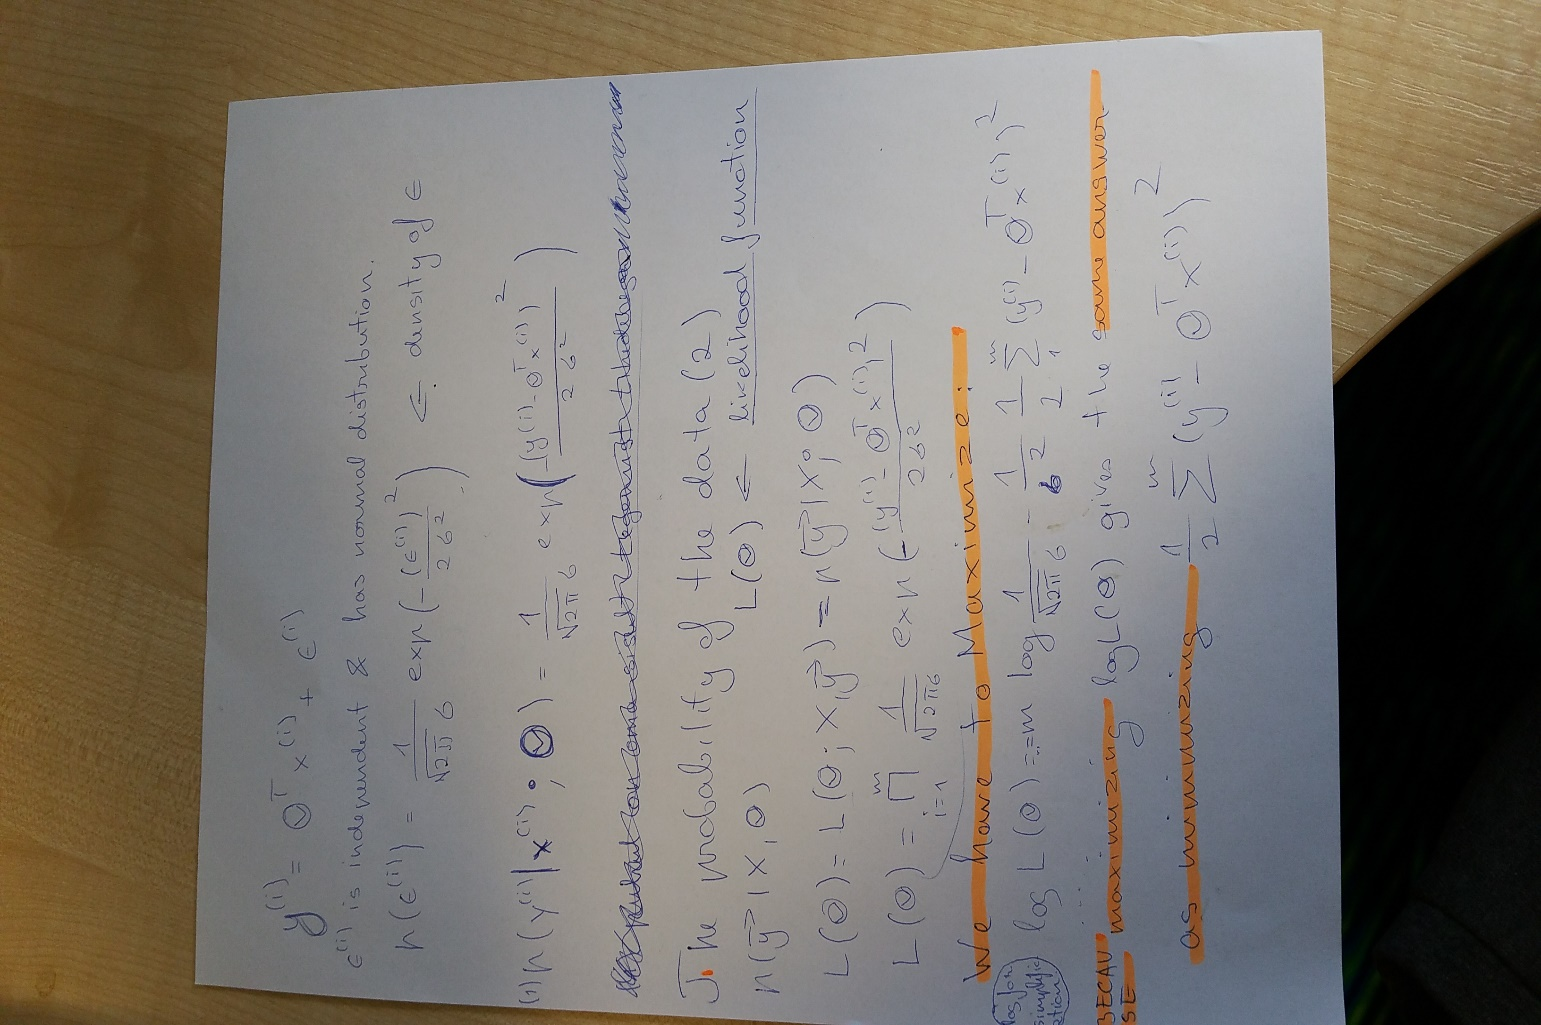 y⁽ⁱ⁾ = Θᵀ x⁽ⁱ⁾ + ϵ⁽ⁱ⁾
ϵ⁽ⁱ⁾ is independent & has normal distribution.
p(ϵ⁽ⁱ⁾) = 1/(√2π σ) exp(-(ϵ⁽ⁱ⁾)²/2σ²) ← density of ϵ
(1) p(y⁽ⁱ⁾|x⁽ⁱ⁾; Θ) = 1/(√2π σ) exp(-(y⁽ⁱ⁾-Θᵀx⁽ⁱ⁾)²/2σ²)
The probability of the data (2)
p(y⃗|X, Θ) L(Θ) ← likelihood function
L(Θ) = L(Θ; X, y⃗) = p(y⃗|X; Θ)
L(Θ) = ∏ᵢ₌₁ᵐ 1/(√2π σ) exp(-(y⁽ⁱ⁾-Θᵀx⁽ⁱ⁾)²/2σ²)
We have to Maximize:
log for simplification log L(Θ) = m log 1/(√2π σ) - 1/σ² 1/2 ∑₁ᵐ (y⁽ⁱ⁾ - Θᵀx⁽ⁱ⁾)²
BECAUSE maximizing log L(Θ) gives the same answer
as minimizing 1/2 ∑ᵐ (y⁽ⁱ⁾ - Θᵀx⁽ⁱ⁾)²